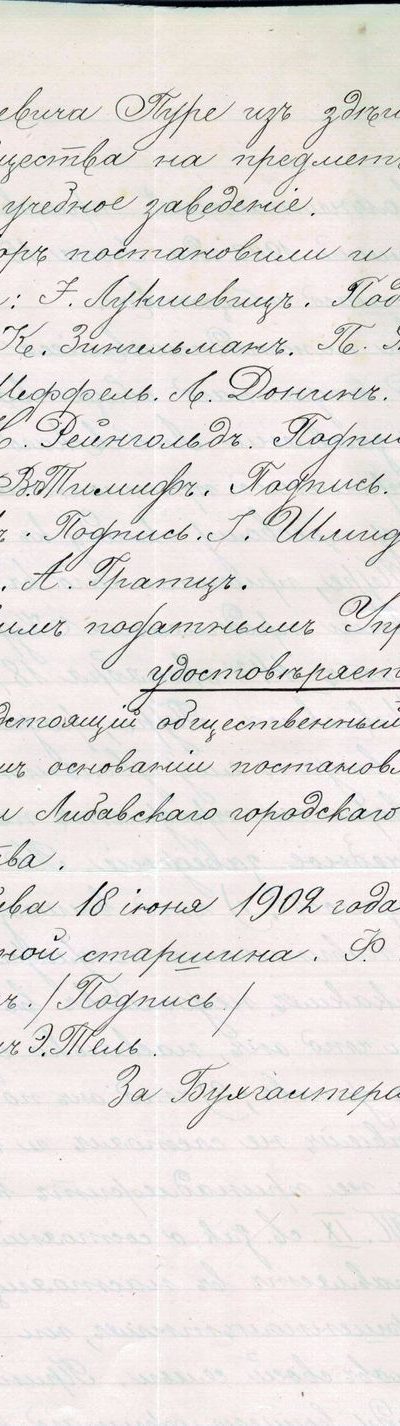 евича Пуре изъ здѣш
щества на предметъ
учебное заведеніе.
оръ постановили и
: Г. Лукшевицъ. Под
К. Зингельманъ. П.
Шеффель. Л. Донинъ.
Рейнгольдъ. Подпи
В. Тимифъ. Подпись.
ъ. Подпись. Г. Шмид
. А. Гратцъ.
имъ податнымъ Упр
удостовѣряет
дстоящій общественный
основаніи постановл
и Либавскаго городскаго
тва.
ава 18 іюня 1902 года
ной старшина. Ф
ъ. /Подпись/
Э. Тель
За Бухгалтера